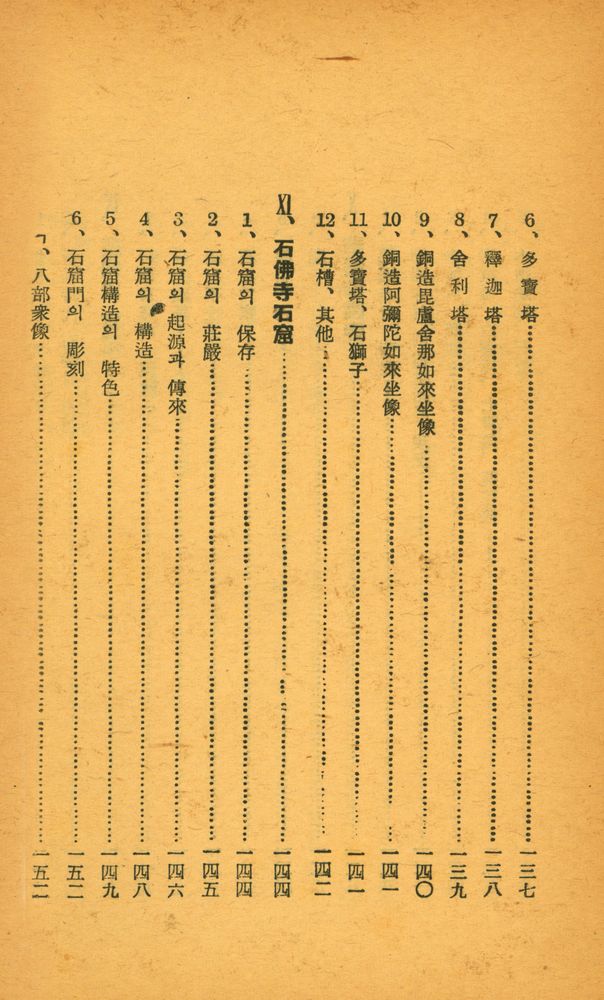 6、多寶塔……一三七
7、釋迦塔……一三八
8、舍利塔……一三九
9、銅造毘盧舍那如來坐像……一四〇
10、銅造阿彌陀如來坐像……一四一
11、多寶塔、石獅子……一四一
12、石槽、其他……一四二
XI、石佛寺石窟……一四四
1、石窟의 保存……一四四
2、石窟의 莊嚴……一四五
3、石窟의 起源과 傳來……一四六
4、石窟의 構造……一四八
5、石窟構造의 特色……一四九
6、石窟門의 彫刻……一五二
ㄱ、八部衆像……一五二